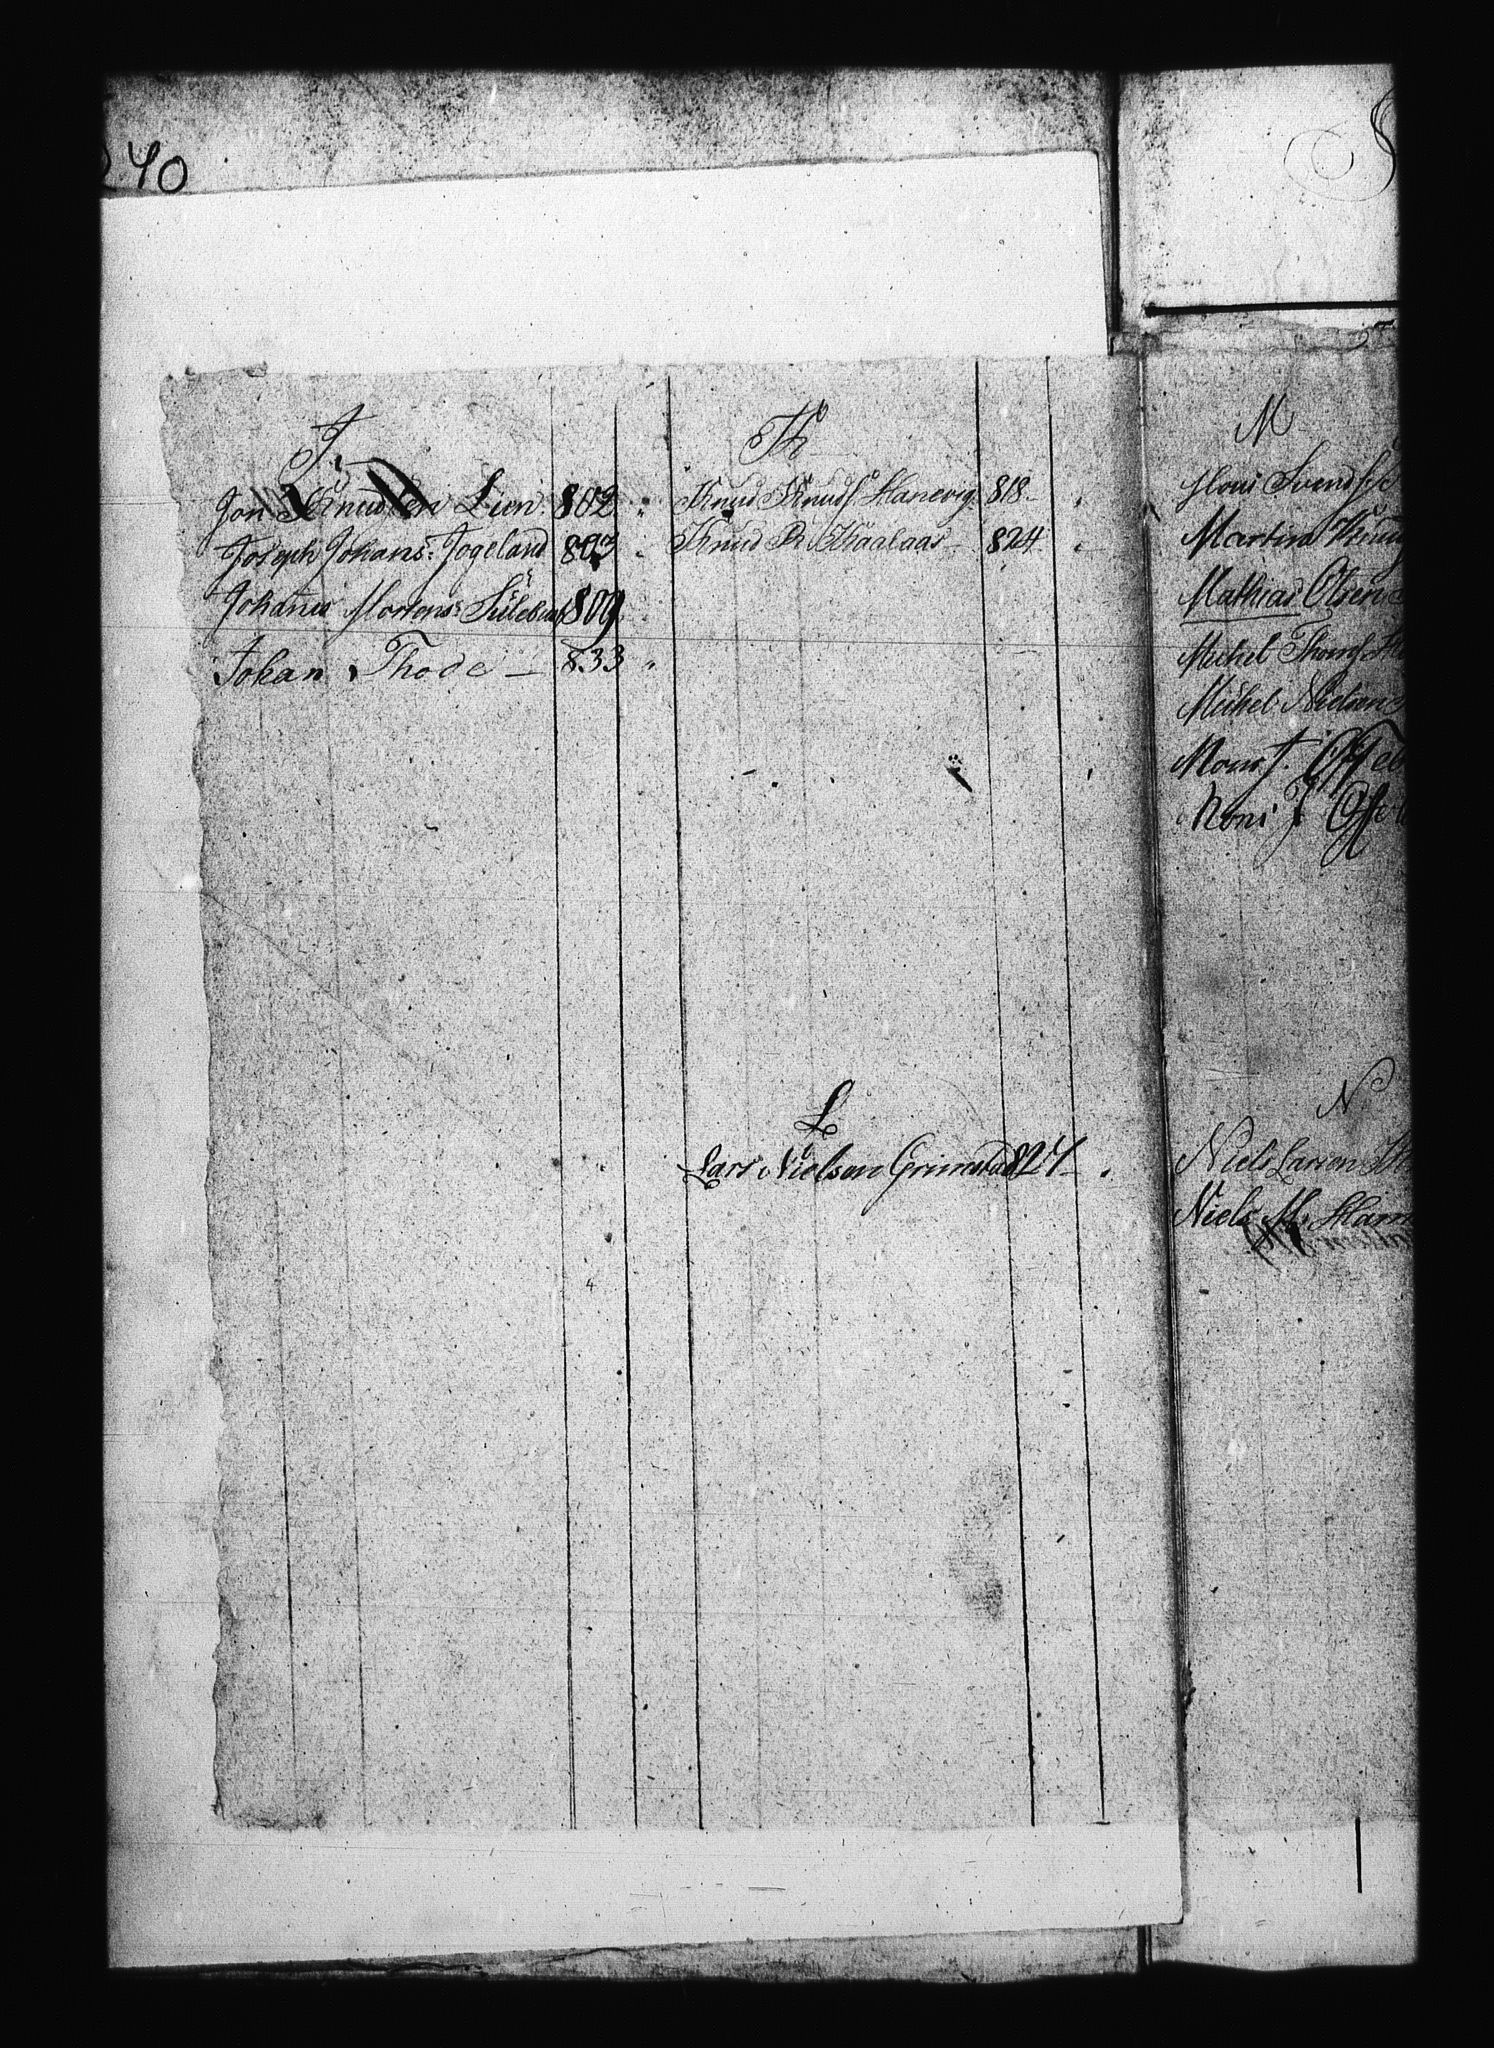 40
J.
Jon Knudsen Lien. 802 "
Joseph Johans: Jogeland 803 "
Johanes Mortens: 809
Johan Thode — 833 "
K
Knud Knuds. Hanevig. 818 —
Knud R. Kaalaas — 824
L
Lars Nielsen Grimstad 827 —
M
Mons Svends
Martin Knud
Mathias Olsen
Michel Thoms
Michel Nielsen
Mons J.
Mons J.
N
Niels Larsen
Niels M. Ham